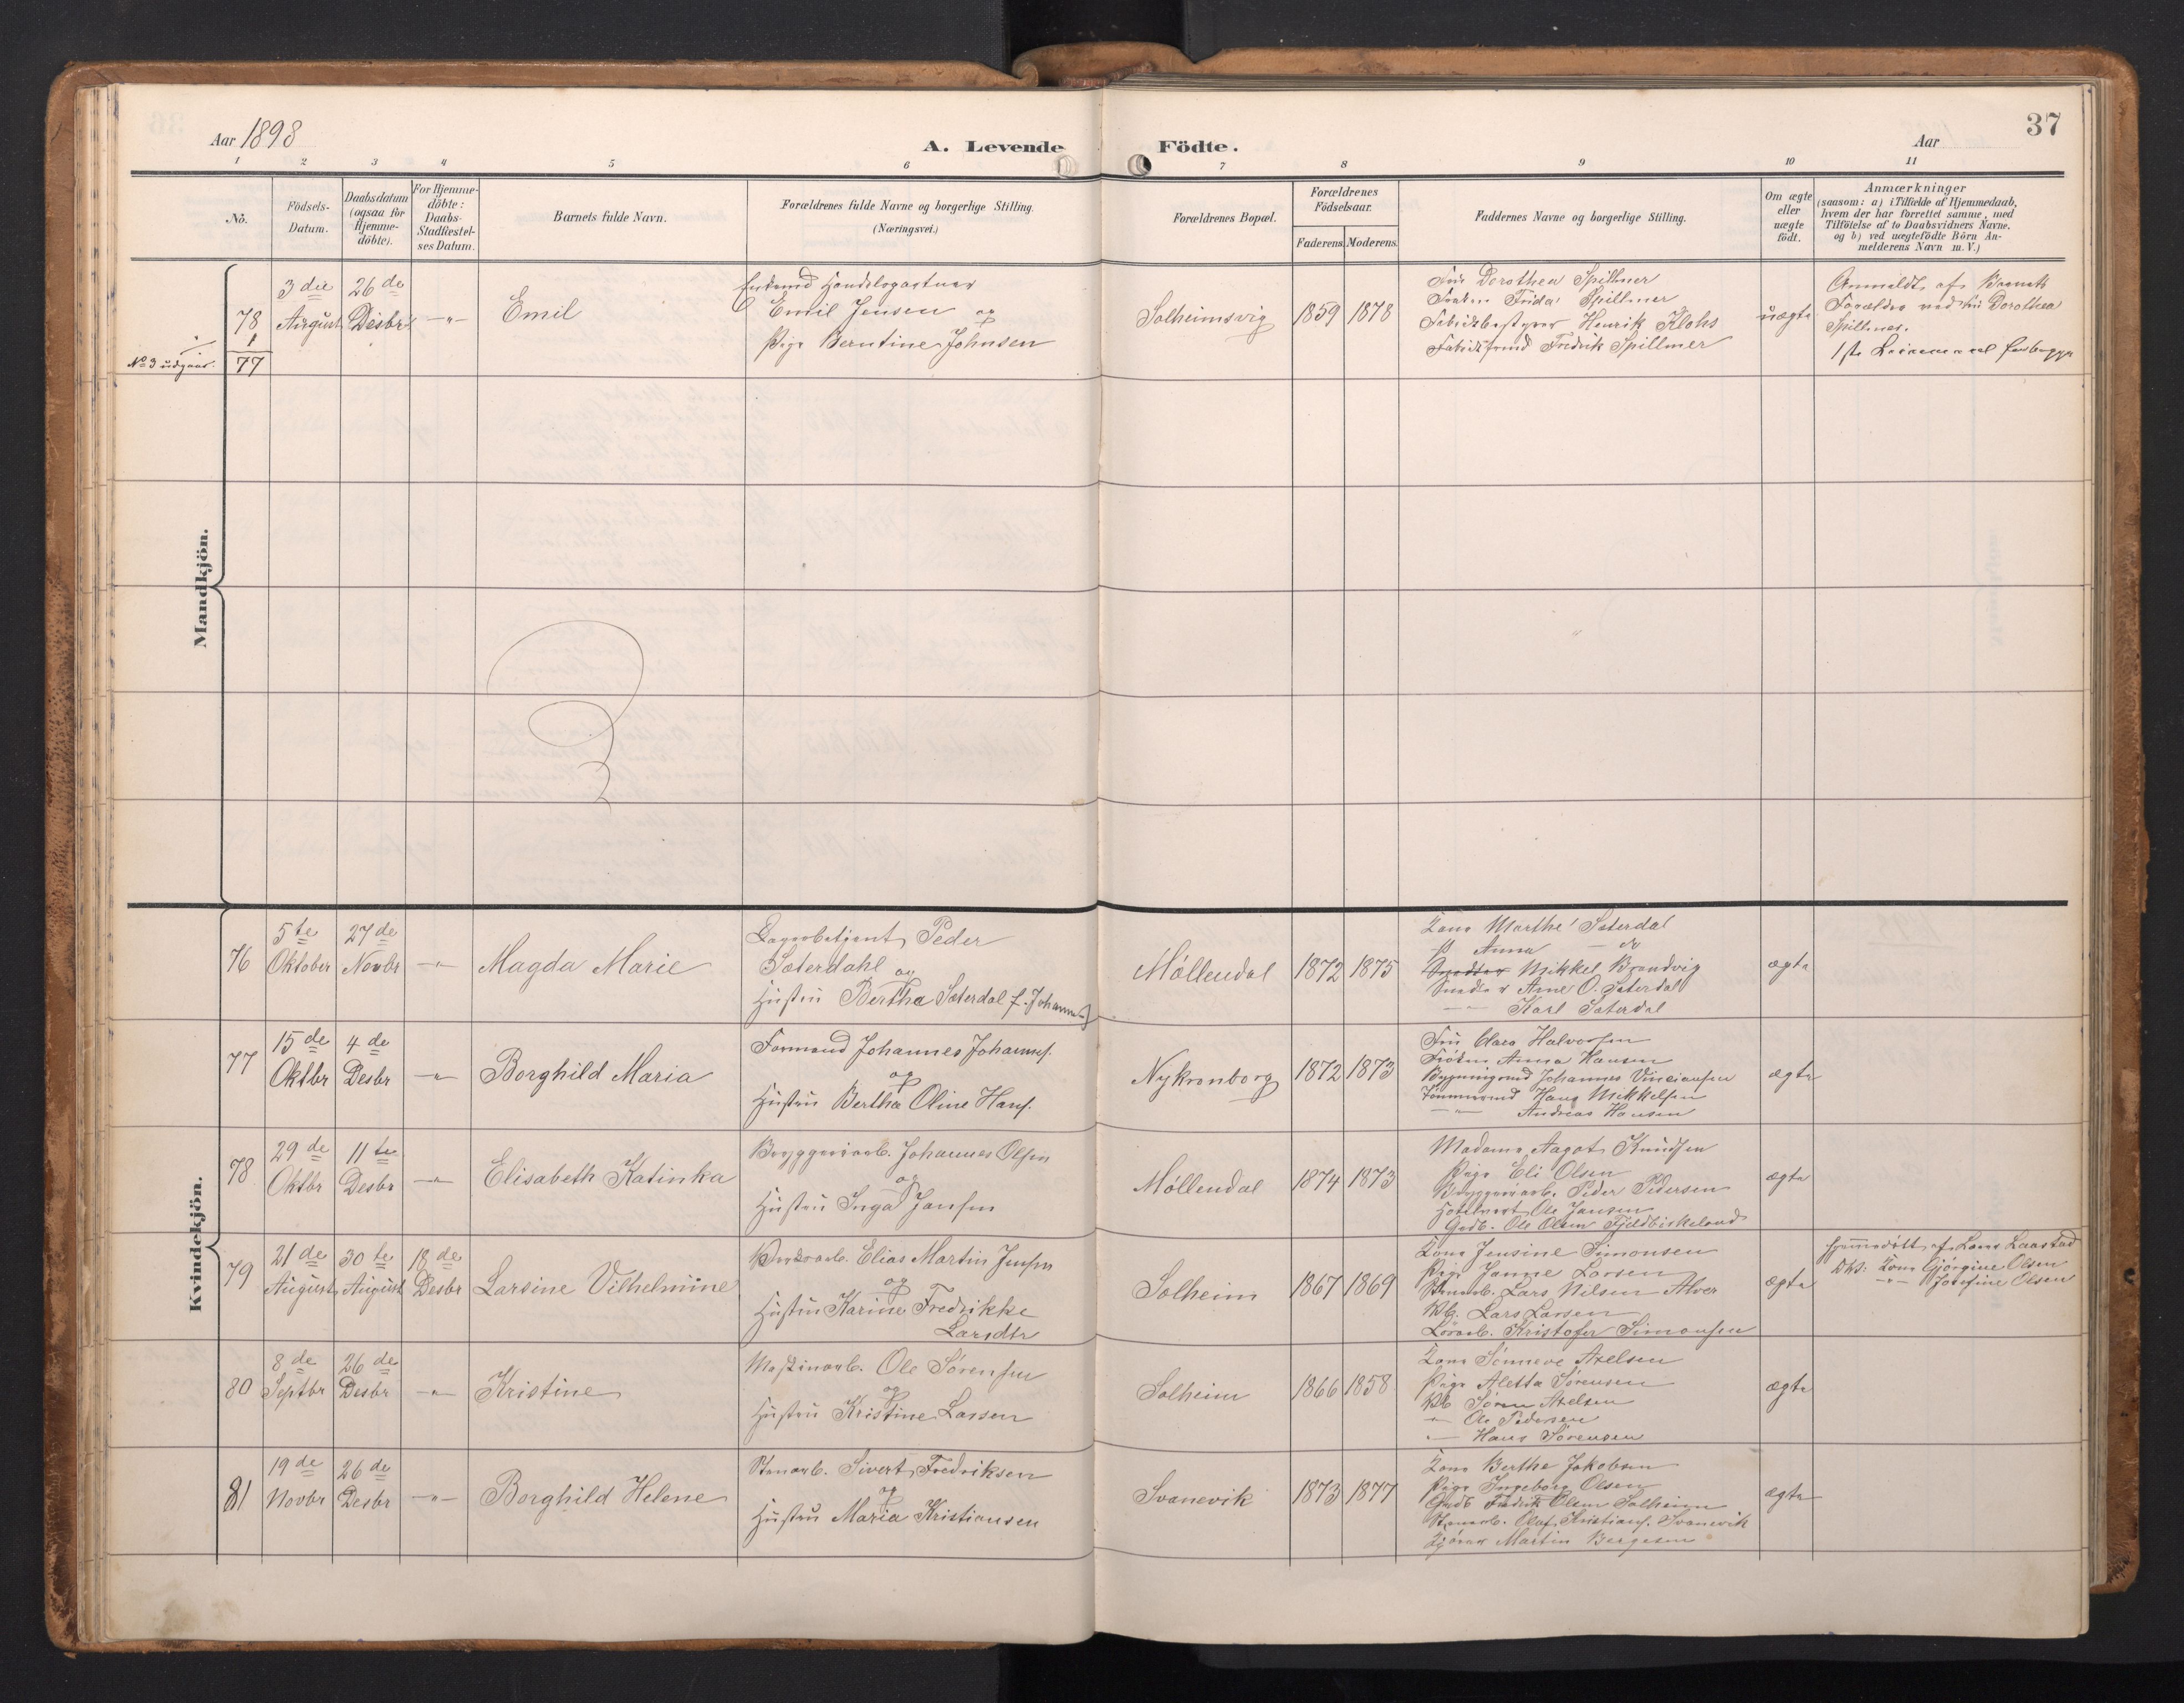 37
Aar 1898
A. Levende Födte.
Aar
1 2 3 4 5 6 7 8 9 10 11
Nö.
Födsels-Datum.
Daabsdatum (ogsaa för Hjemme-döbte).
For Hjemme-döbte: Daabs-Stadfæstel-ses Datum.
Barnets fulde Navn.
Forældrenes fulde Navne og borgerlige Stilling.
(Næringsvei.)
Forældrenes Bopæl.
Forældrenes Födselsaar.
Faderens. Moderens.
Faddernes Navne og borgerlige Stilling.
Om ægte eller uægte födt.
Anmærkninger
(saasom: a) i Tilfælde af Hjemmedaab,
hvem der har forrettet samme, med
Tilföielse af to Daabsvidners Navne.
og b) ved uægtefödte Börn An-
melderens Navn m. V.)
Mandkjön.
78
1
77
No 3 udgaar.
3 die August
26 de Desbr
Emil
Enkemd Handelsgartner
Emil Jensen og
Pige Berntine Johnsen
Solheimsvig
1859 1878
Fru Dorothea Spillmer
Frøken Frida Spillmer
Fabrikbestyrer Henrik Klohs
Fredrik Spillmer
uægte
Anmeldt af Barnets
Forældre ved fru Dorothea
Spillmer.
1ste Leiermaal for begge
Kvindekjön.
76
5te Oktober
27 de Novbr
Magda Marie
Peder
Sæterdahl og
Hustru Bertha Sæterdal f. Johannes
Møllendal
1872 1875
Kone Marthe Sæterdal
P. Anna — do
Mikkel Brandvig
Snedker Arne O. Sæterdal
Karl Sæterdal
ægte
77
15 de Oktbr
4 de Desbr
Borghild Maria
Formand Johannes Johannes.
og
Hustru Bertha Oline Hans.
Nykronborg
1872 1873
Fru Clara Halvorsen
Frøken Anna Hansen
Bygningsmd Johannes Vinciansen
Tømmermd Hans Mikkelsen
Andreas Hansen
ægte
78
29 de Oktbr
11 te Desbr
Elisabeth Katinka
Bryggeriarb. Johannes Olsen
og
Hustru Inga Jansen
Møllendal
1874 1873
Madame Aagot Knudsen
Pige Eli Olsen
Bryggeriarb. Peder Pedersen
Ole Jansen
Gadb. Ole Olsen Fjeldbirkeland
ægte
79
21 de August
30 te August
18 de Desbr
Larsine Vilhelmine
Elias Martin Jensen
og
Hustru Karine Fredrikke
Larsdtr
Solheim
1867 1869
Kone Jensine Simonsen
Pige Janne Larsen
Lars Nilsen Alver
Lars Larsen
Kristofer Simonsen
ægte
Hjemmedøbt af Lars Laastad
DV: Kone Gjørgine Olsen
Josefine Olsen
80
8 de Septbr
26 de Desbr
Kristine
Maskinarb. Ole Sørensen
og
Hustru Kristine Larsen
Solheim
1866 1858
Kone Sønneve Axelsen
Pige Aletta Sørensen
Søren Axelsen
Ole Pedersen
Hans Sørensen
ægte
81
19 de Novbr
26 de Desbr
Borghild Helene
Stenarb. Sivert Fredriksen
og
Hustru Maria Kristiansen
Svanevik
1873 1877
Kone Berthe Jakobsen
Pige Ingeborg Olsen
Gadb Fredrik Olsen Solheim
Stenarb. Olaf Kristians. Svanevik
Martin Bergesen
ægte